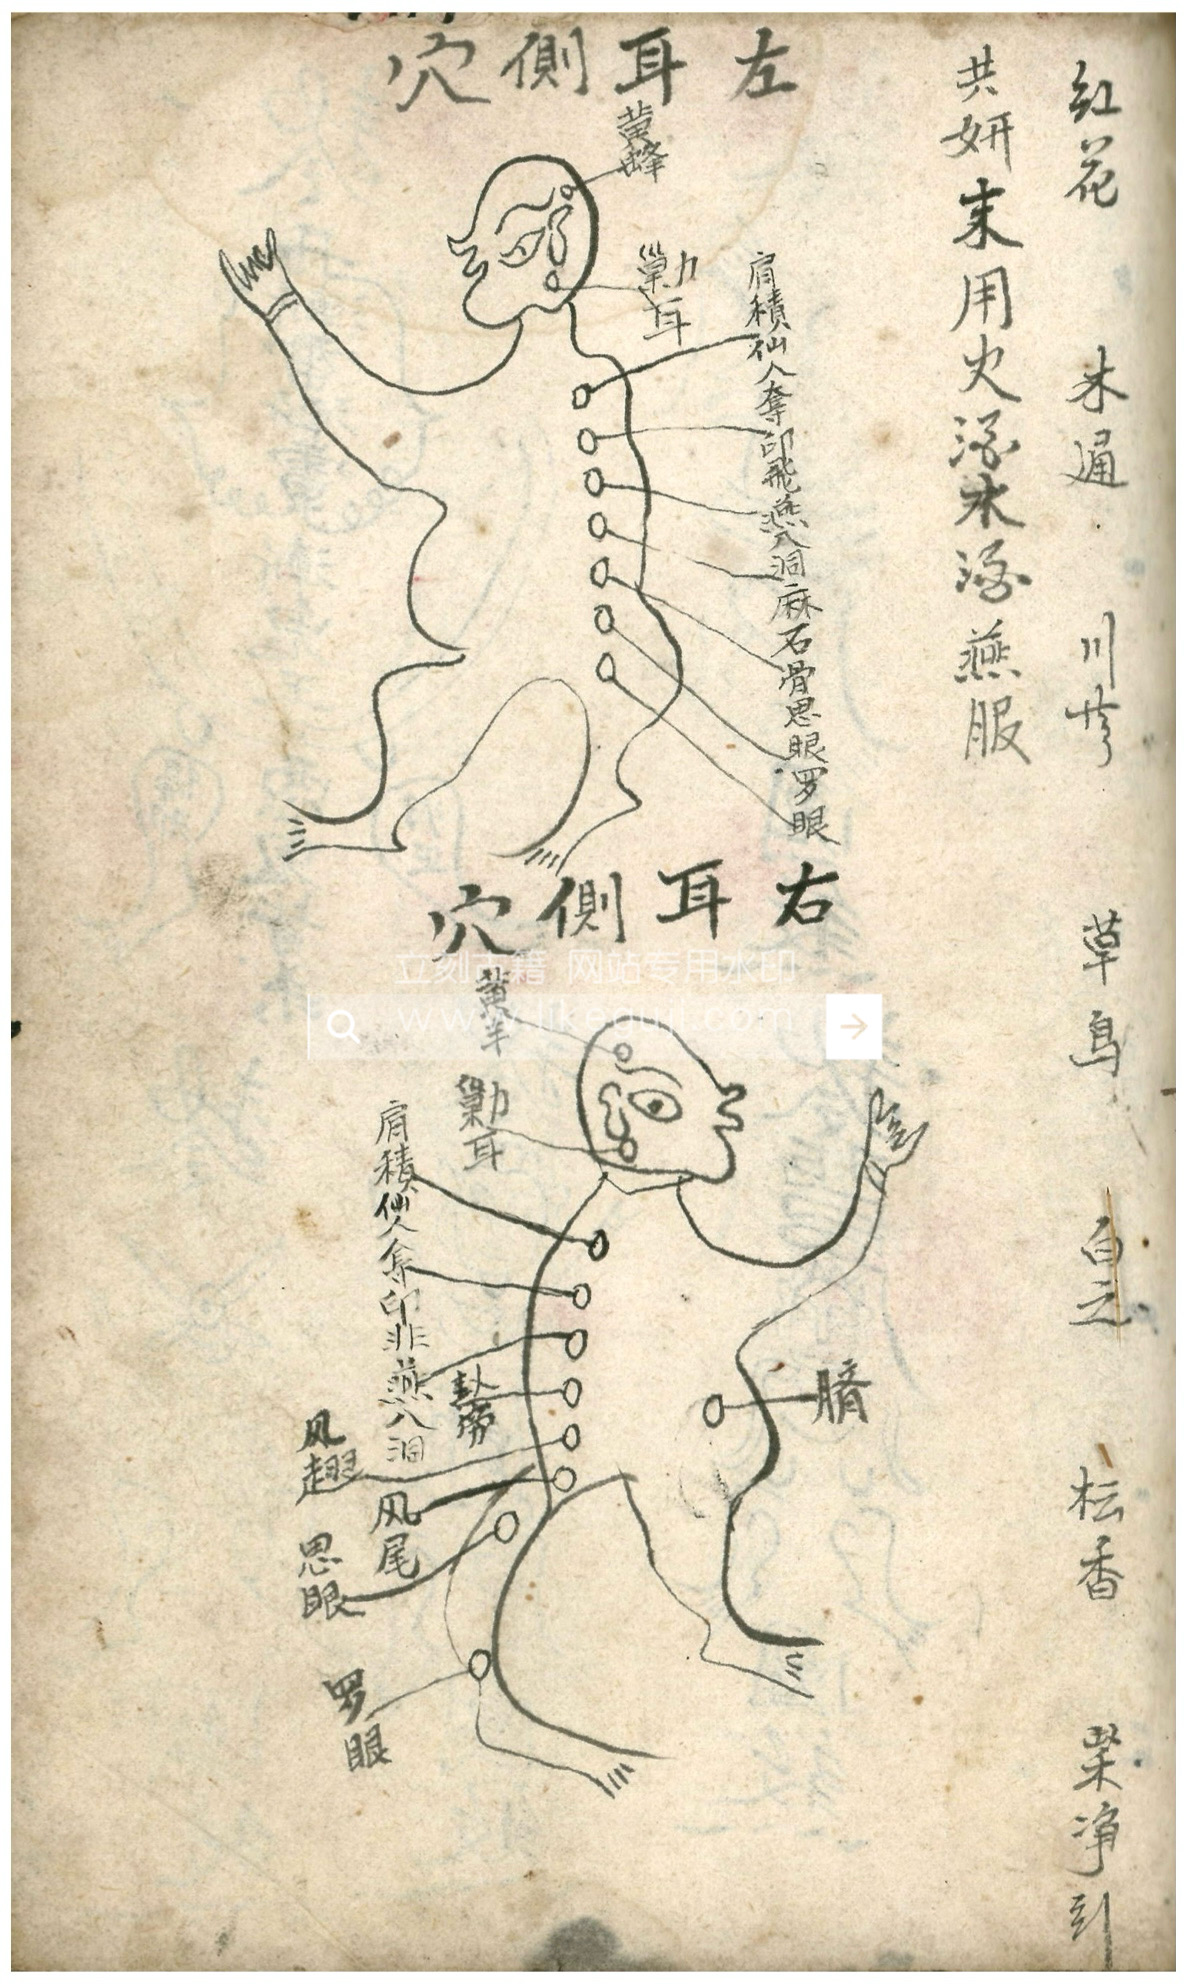 紅花 木通 川芎 草烏 白芷 枟香 梁净 刮
共妍末用火酒水酒燕服
左耳側穴
黄蜂
勦耳
肩積
仙人奪印
飛燕入洞
麻石骨
思眼
罗眼
右耳側穴
黄羊
勦耳
肩積
仙人奪印
非燕入洞
风翅
风尾
思眼
罗眼
立刻古籍 网站专用水印
www.likeguji.com